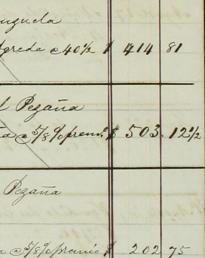 nzuela
Agreda c 40½ $ 414 81
l Pezaña
a c 5/8 % premi $ 503 12½
Pezaña
a c 5/8 % premio $ 202 75